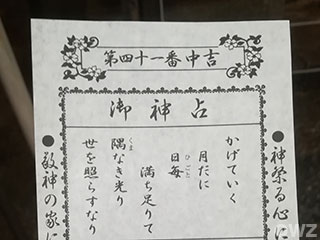 第四十一番中吉
御神占
●神祭る心に
かげていく
月だに
日毎
ひごと
満ち足りて
隅なき光り
くま
世を照らすなり
●敬神の家に